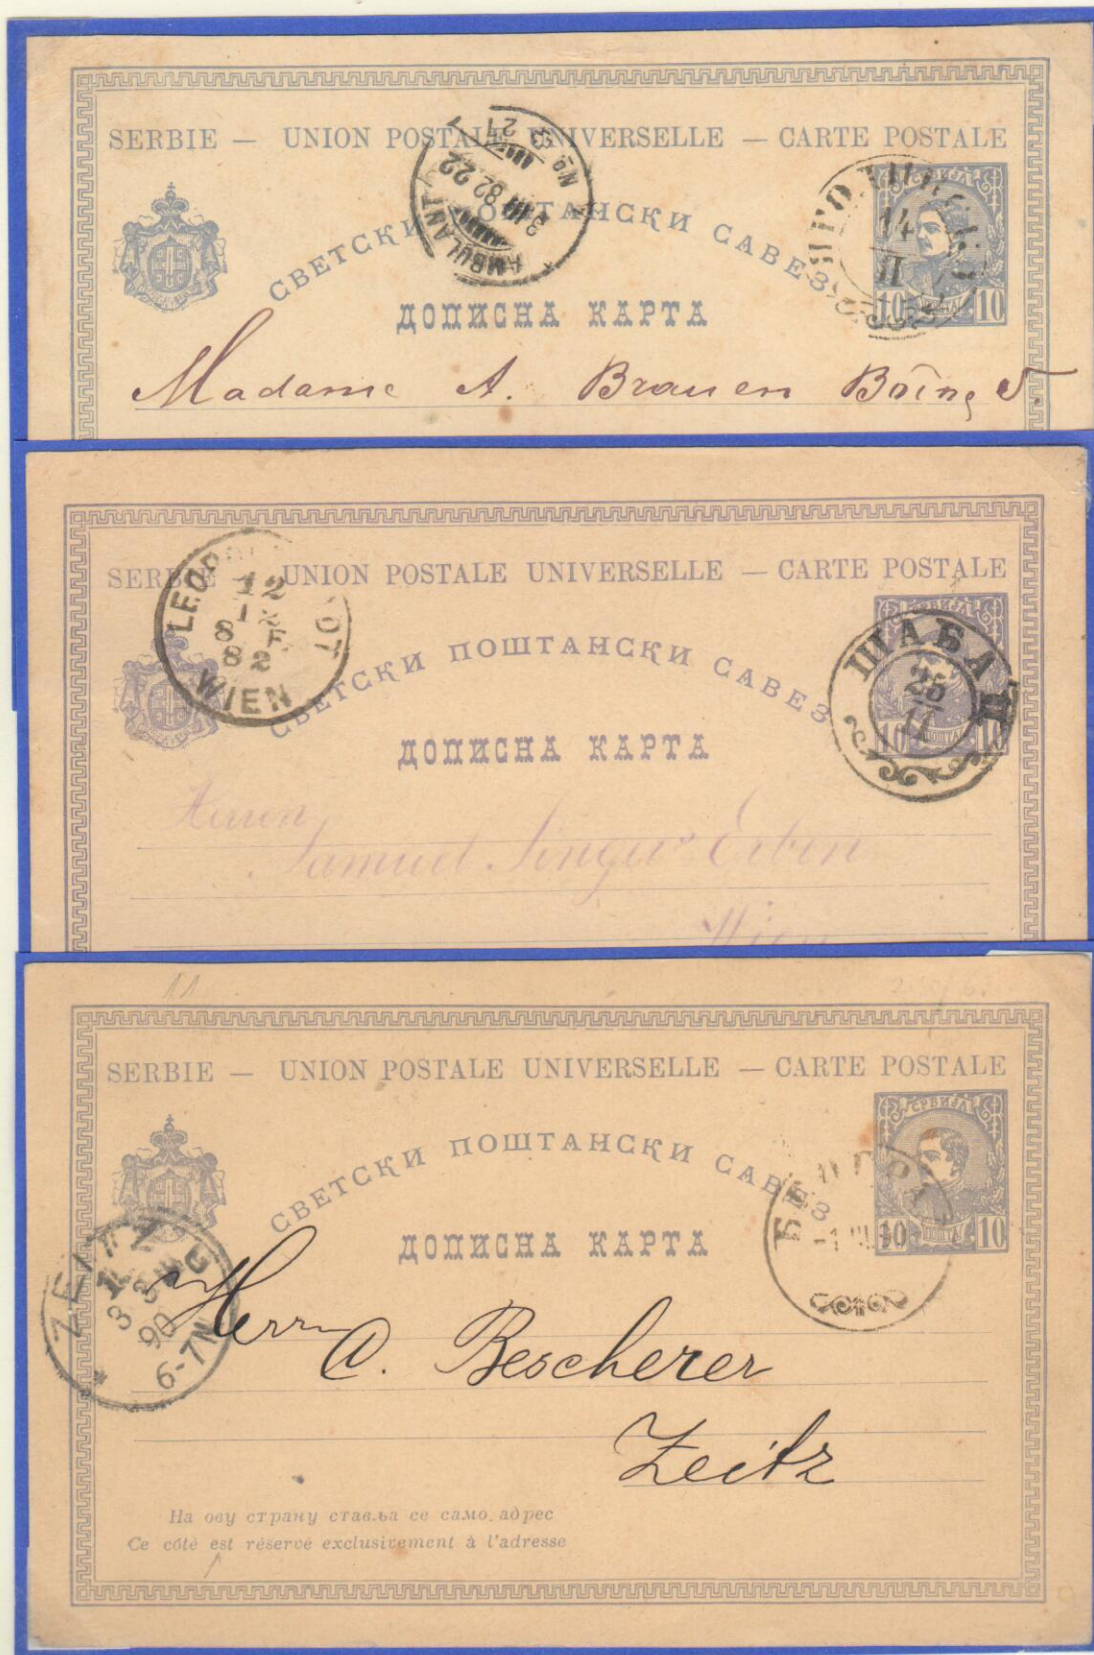 SERBIE — UNION POSTALE UNIVERSELLE — CARTE POSTALE
AMBULANT No 21
3 III 82 22
СВЕТСКИ ПОШТАНСКИ САВЕЗ
14
II
10 10
ДОПИСНА КАРТА
Madame A. Brauen
SERBIE — UNION POSTALE UNIVERSELLE — CARTE POSTALE
WIEN
12
82
СРБИЈА
СВЕТСКИ ПОШТАНСКИ САВЕЗ
ШАБАЦ
25
11
10 ПОШТА 10
ДОПИСНА КАРТА
Herren
Samuel Singer's Erben
Wien
11
SERBIE — UNION POSTALE UNIVERSELLE — CARTE POSTALE
СРБИЈА
СВЕТСКИ ПОШТАНСКИ САВЕЗ
10 ПОШТА 10
ДОПИСНА КАРТА
ZEITZ
90
6-7N
Herrn
A. Bescherer
Zeitz
На ову страну ставља се само адрес
Ce côté est réservé exclusivement à l'adresse